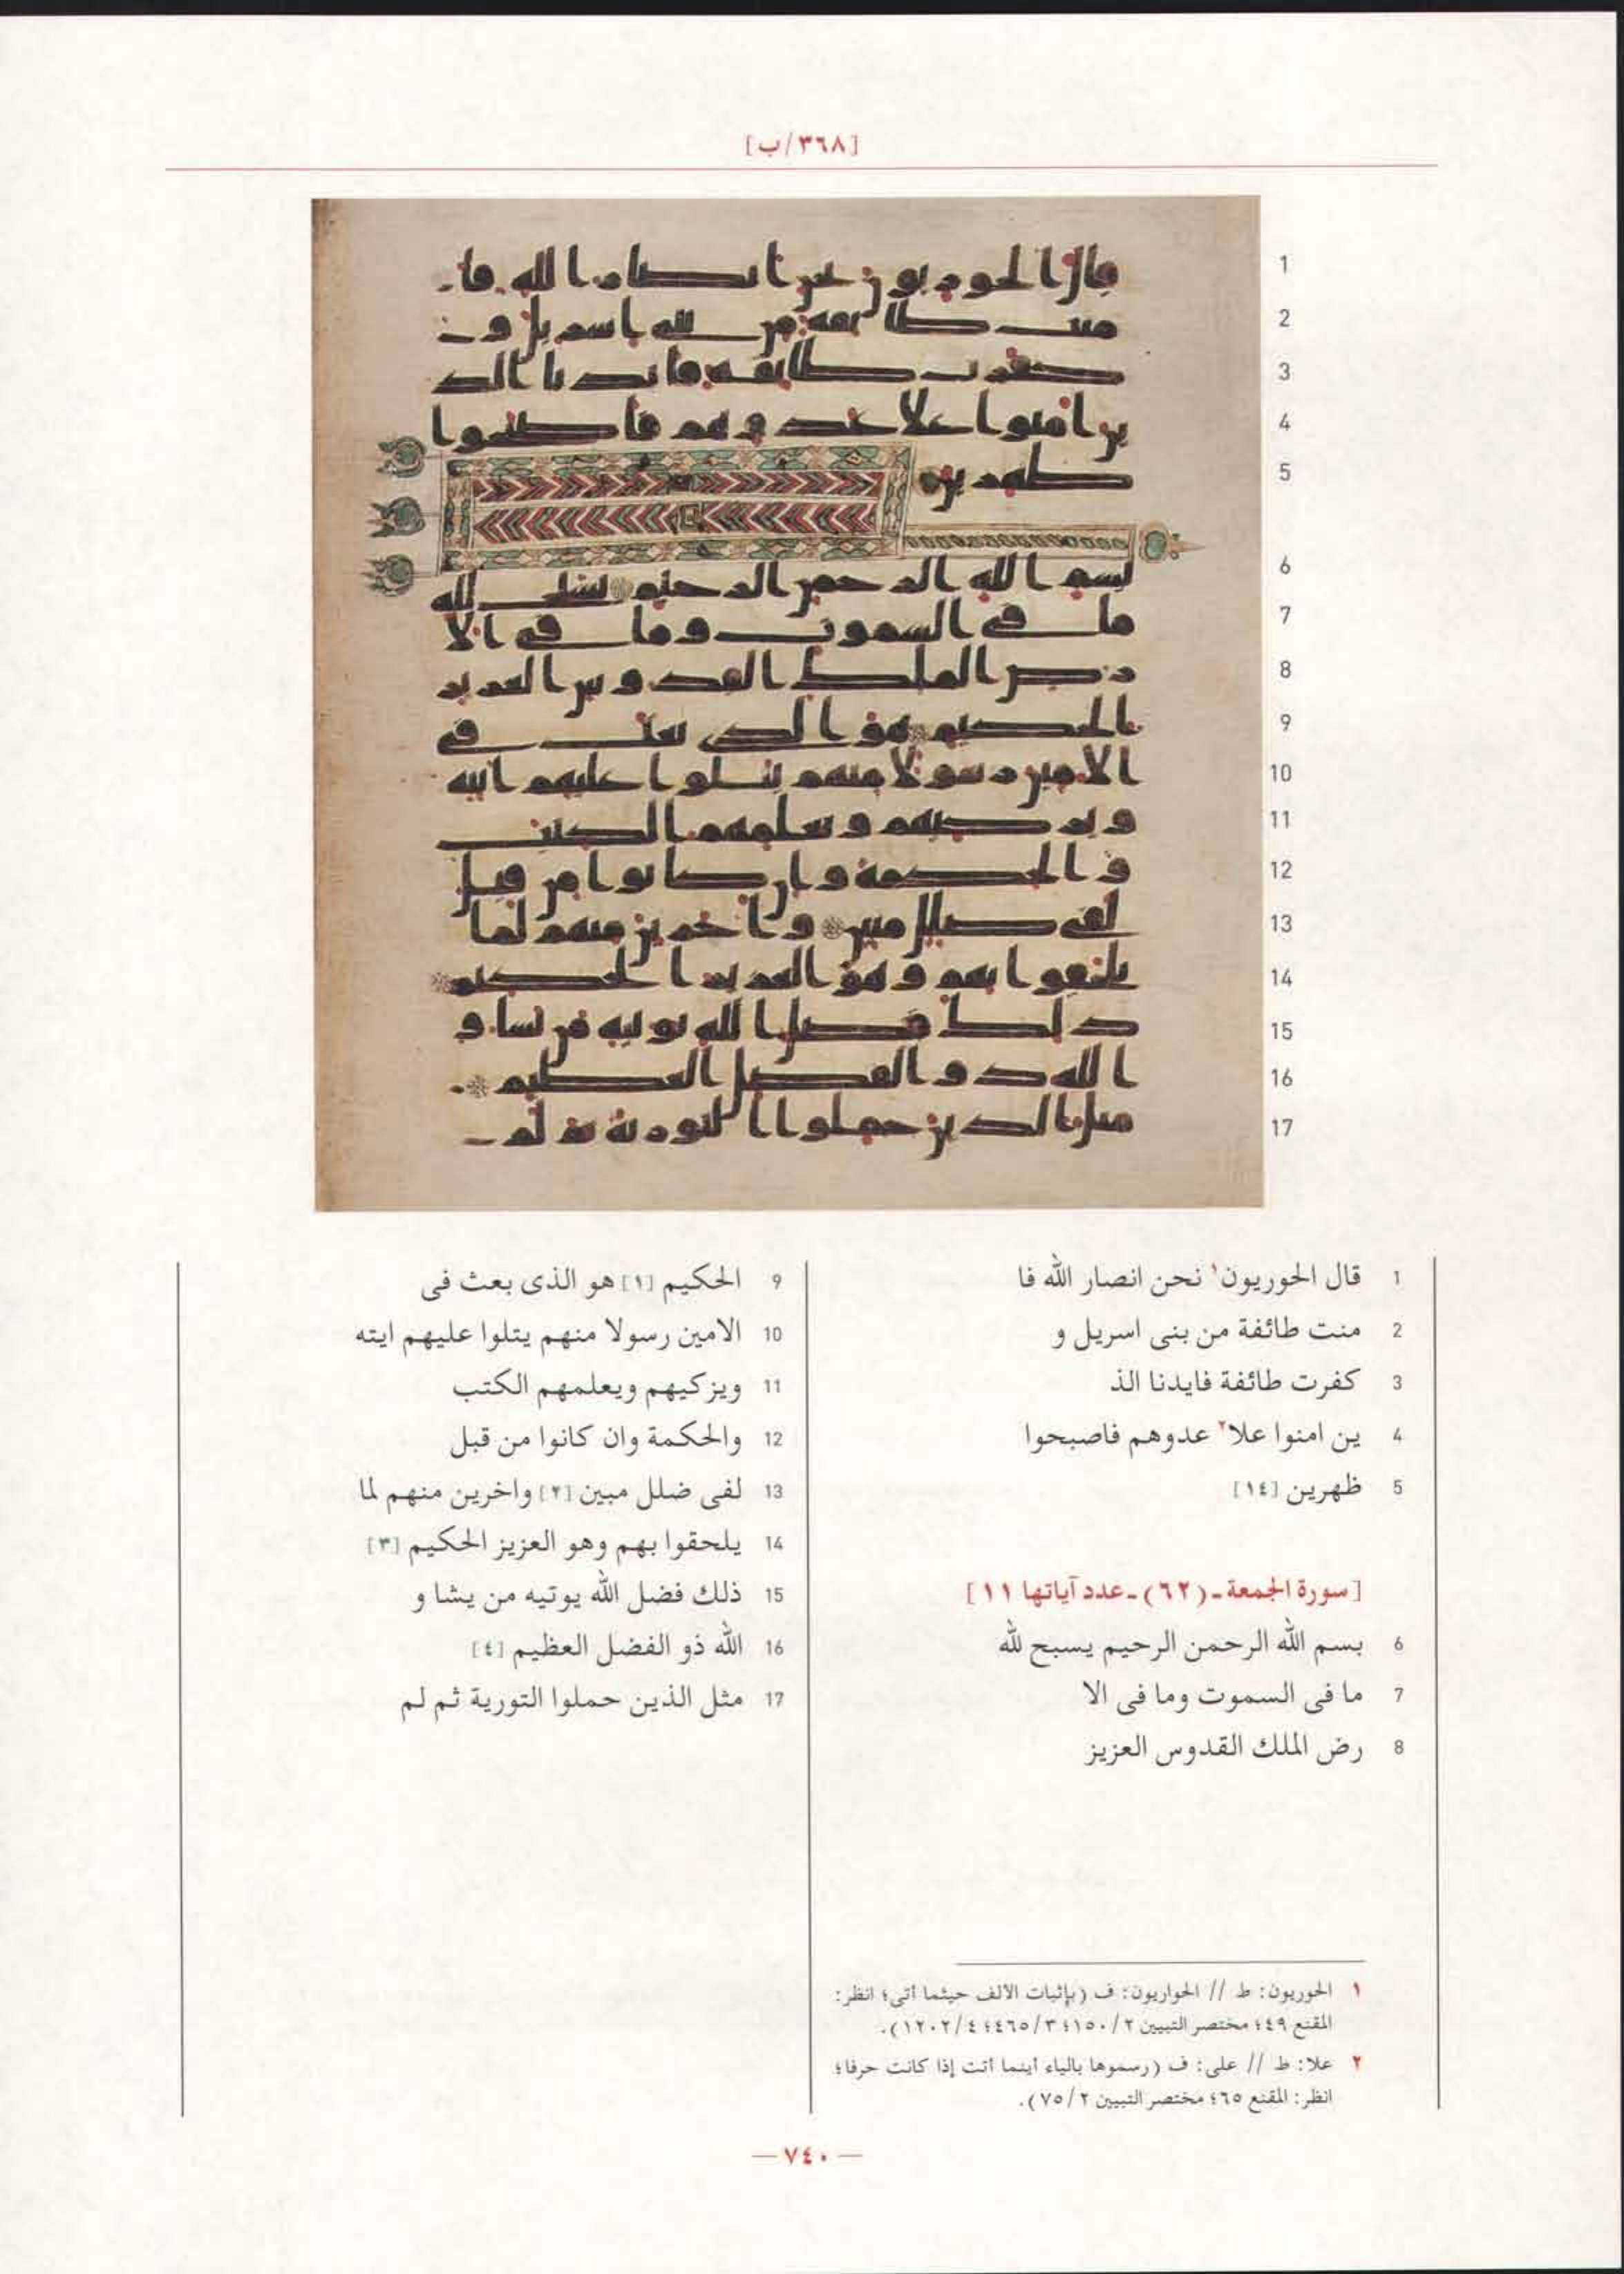 [٣٦٨/ب]
1 قال الحوريون١ نحن انصار الله فا
2 منت طائفة من بنى اسريل و
3 كفرت طائفة فايدنا الذ
4 ين امنوا علا٢ عدوهم فاصبحوا
5 ظهرين [١٤]
[سورة الجمعة ـ (٦٢) ـ عدد آياتها ١١]
6 بسم الله الرحمن الرحيم يسبح لله
7 ما فى السموت وما فى الا
8 رض الملك القدوس العزيز
9 الحكيم [١] هو الذى بعث فى
10 الامين رسولا منهم يتلوا عليهم ايته
11 ويزكيهم ويعلمهم الكتب
12 والحكمة وان كانوا من قبل
13 لفى ضلل مبين [٢] واخرين منهم لما
14 يلحقوا بهم وهو العزيز الحكيم [٣]
15 ذلك فضل الله يوتيه من يشا و
16 الله ذو الفضل العظيم [٤]
17 مثل الذين حملوا التورية ثم لم
١ الحوريون: ط // الحواريون: ف (بإثبات الالف حيثما أتى؛ انظر:
المقنع ٤٩؛ مختصر التبيين ٢/١٥٠؛ ٣/٤٦٥؛ ٤/١٢٠٢).
٢ علا: ط // على: ف (رسموها بالياء أينما أتت إذا كانت حرفا؛
انظر: المقنع ٦٥؛ مختصر التبيين ٢/٧٥).
— ٧٤٠ —